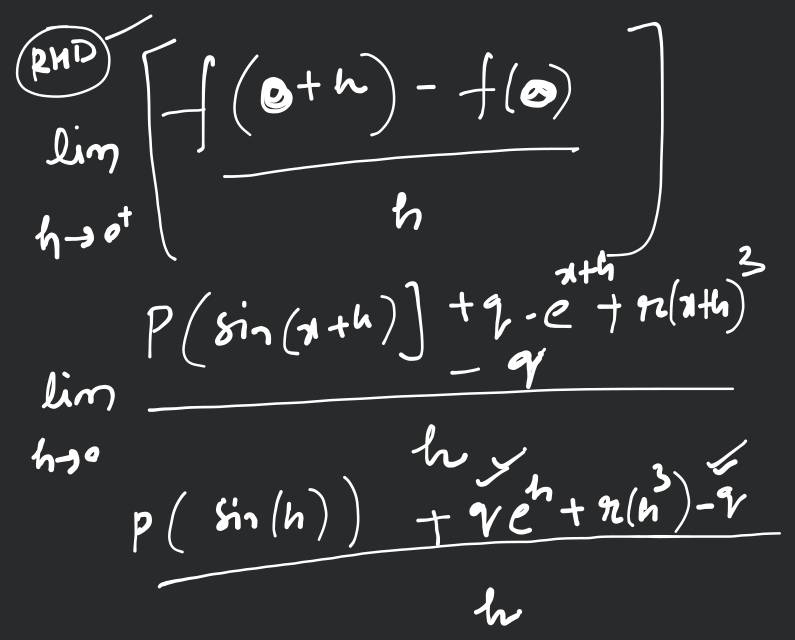 RHD
lim h→0⁺ [ f(0+h) - f(0) / h ]
lim h→0 P(sin(x+h)] + q.e^(x+h) + r(x+h)³ - q / h
P( sin(h)) + qe^h + r(h³) - q / h